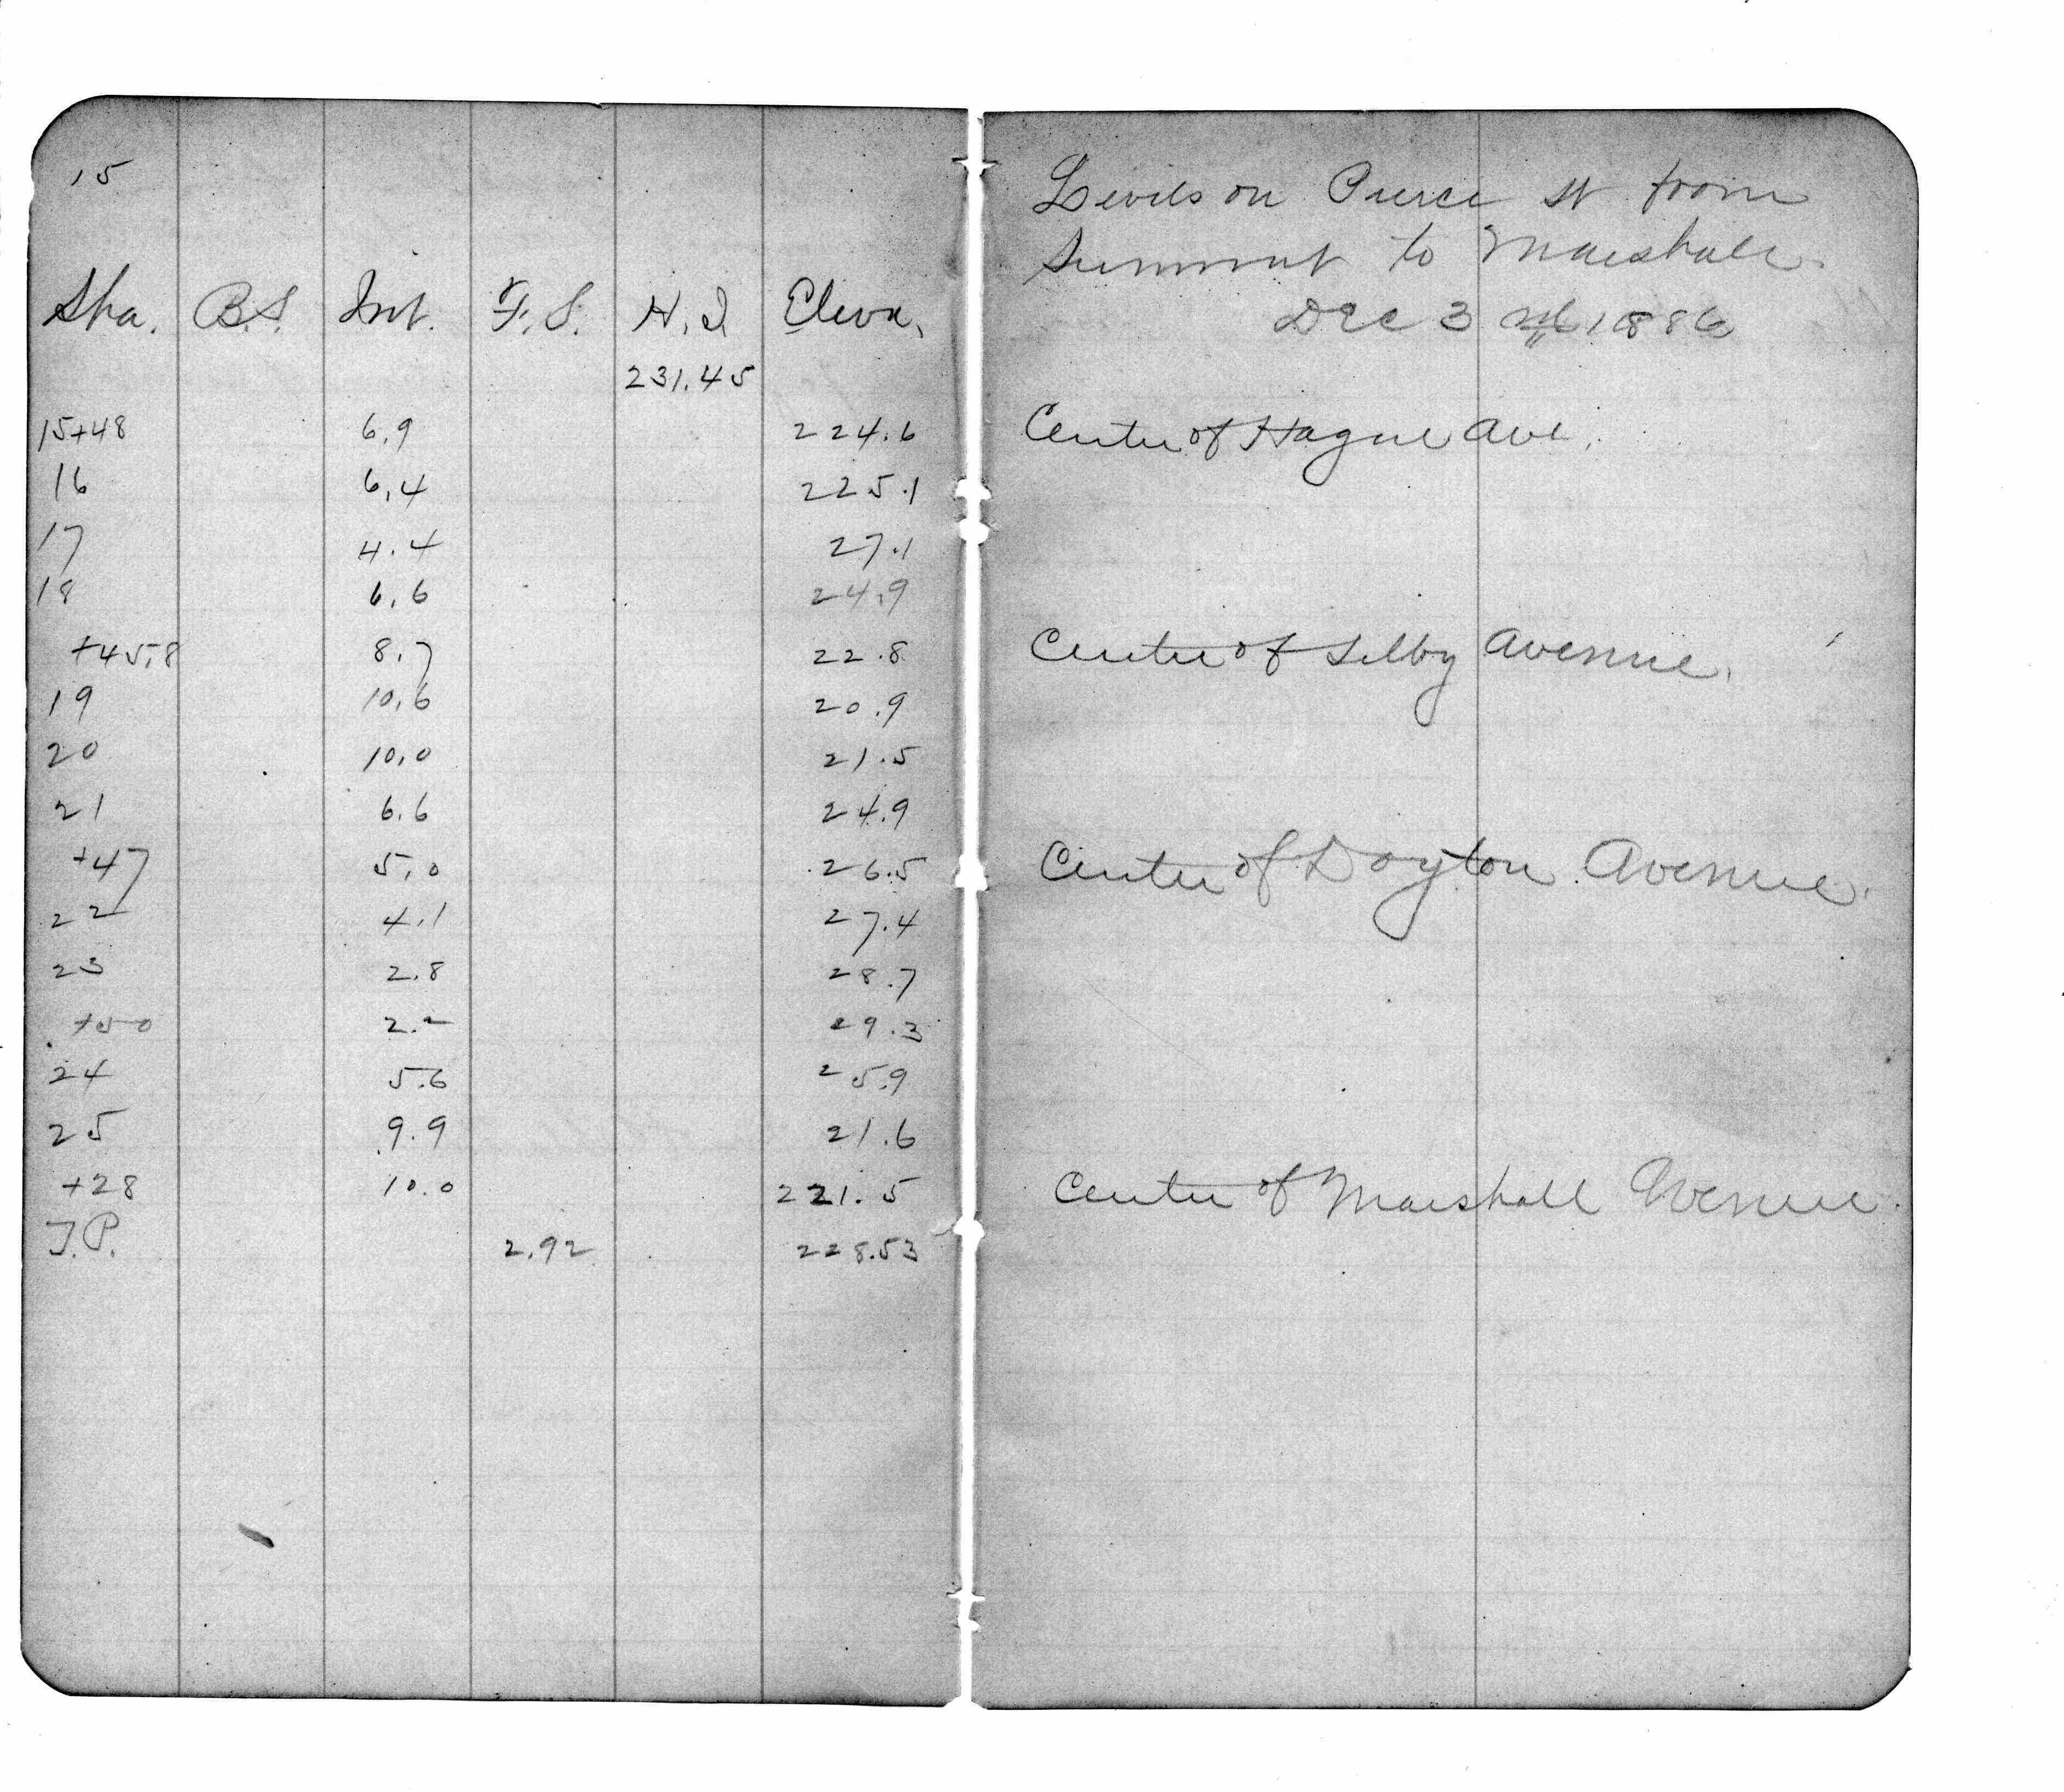 15
Levels on Pierce St from
Summit to Marshall.
Dec 3rd 1886
Sta. B.S. Int. F.S. H.I. Eleva.
231.45
15+48 6.9 224.6 Center of Hague Ave.
16 6.4 225.1
17 4.4 27.1
18 6.6 24.9
+45.8 8.7 22.8 Center of Selby Avenue.
19 10.6 20.9
20 10.0 21.5
21 6.6 24.9
+47 5.0 26.5 Center of Dayton Avenue.
22 4.1 27.4
23 2.8 28.7
+50 2.2 29.3
24 5.6 25.9
25 9.9 21.6
+28 10.0 221.5 Center of Marshall Avenue.
T.P. 2.92 228.53